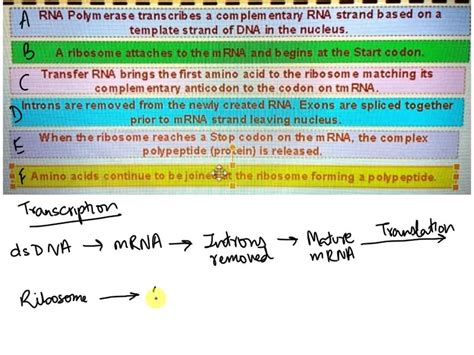 A RNA Polymerase transcribes a complementary RNA strand based on a
template strand of DNA in the nucleus.
B A ribosome attaches to the mRNA and begins at the Start codon.
C Transfer RNA brings the first amino acid to the ribosome matching its
complementary anticodon to the codon on tmRNA.
D Introns are removed from the newly created RNA. Exons are spliced together
prior to mRNA strand leaving nucleus.
E When the ribosome reaches a Stop codon on the mRNA, the complex
polypeptide (protein) is released.
F Amino acids continue to be joined at the ribosome forming a polypeptide.
Transcription
dsDNA → mRNA → Introns removed → Mature mRNA Translation →
Ribosome →